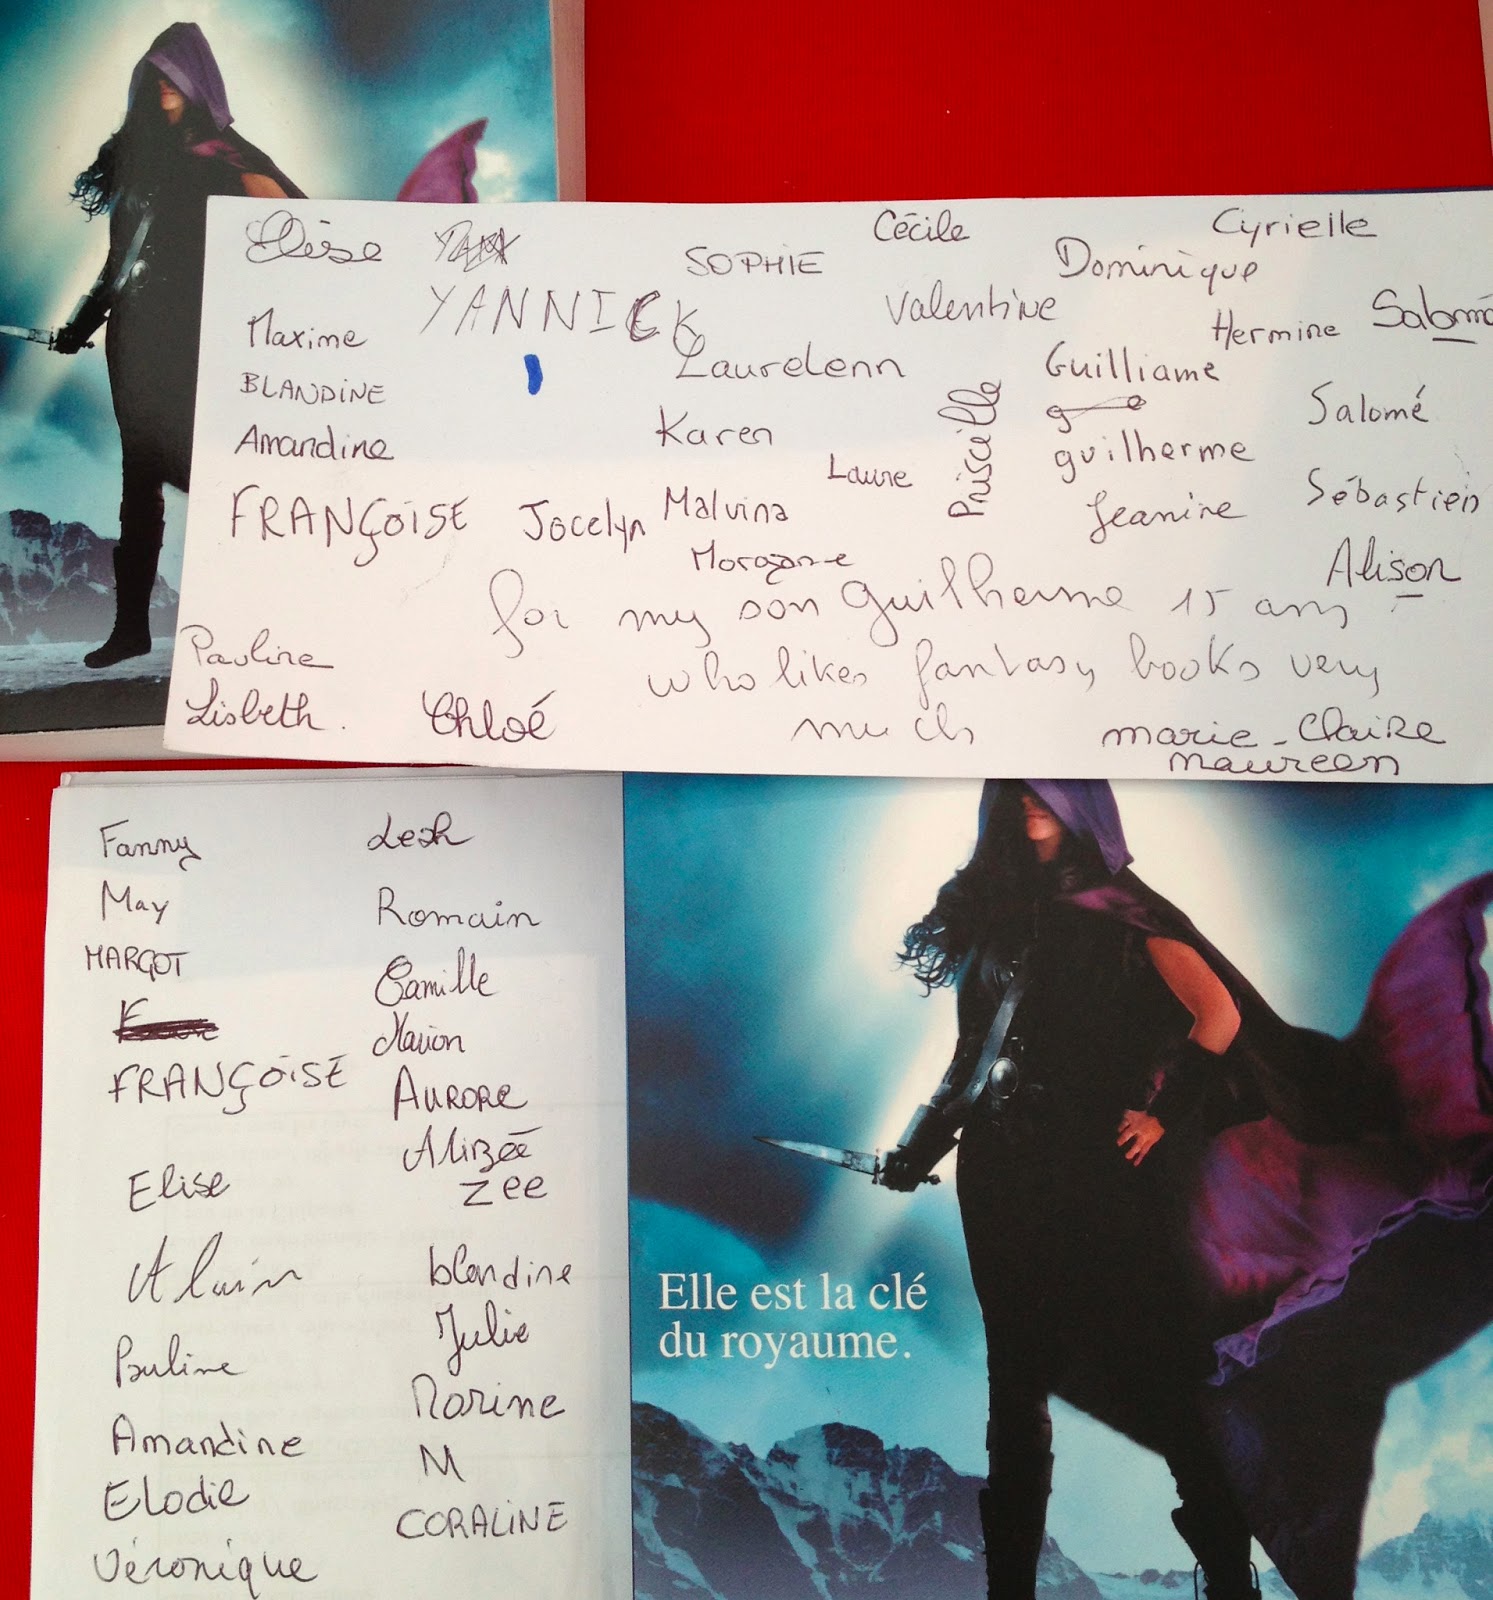 Elise
YANNICK
SOPHIE
Cécile
Cyrielle
Dominique
Valentine
Hermine
Salomé
Maxime
BLANDINE
Laurelenn
Guilliame
Amandine
Karen
Priscille
Salomé
guilherme
Laure
FRANÇOISE
Jocelyn
Malvina
Jeanine
Sébastien
Morgane
Alison
for my son guilherme 15 ans
who likes fantasy books very
much
Pauline
Lisbeth.
Chloé
marie-Claire
maureen
Fanny
May
MARGOT
FRANÇOISE
Elise
Alain
Pauline
Amandine
Elodie
Véronique
Leah
Romain
Camille
Marion
AURORE
Alizée
ZEE
blandine
Julie
Marine
M
CORALINE
Elle est la clé
du royaume.